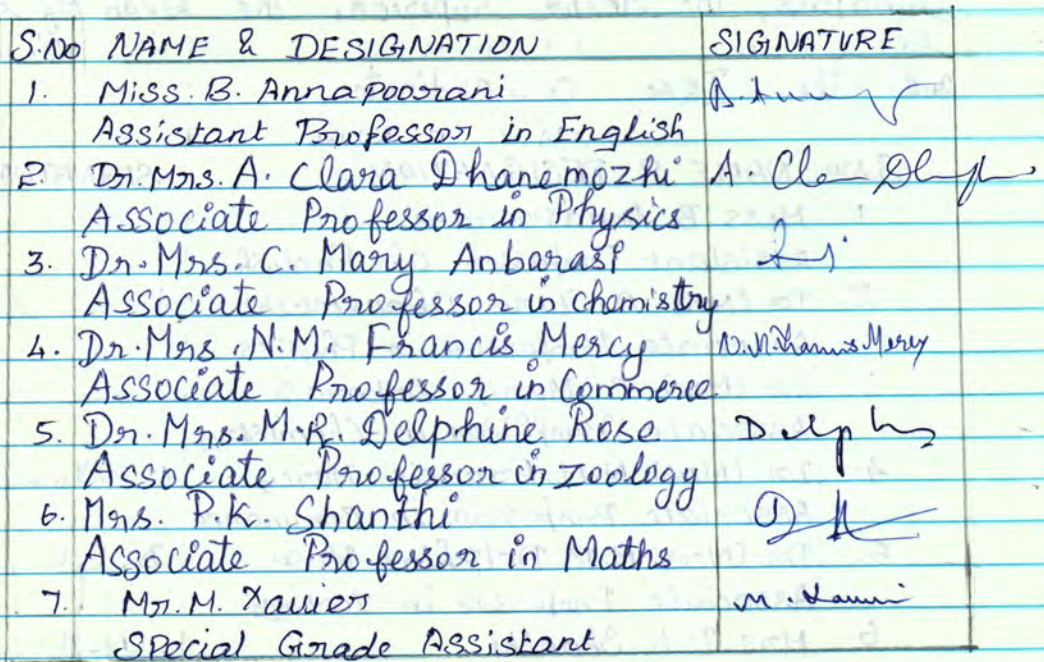 S.No NAME & DESIGNATION SIGNATURE
1. Miss. B. Annapoorani
Assistant Professor in English
2. Dr. Mrs. A. Clara Dhanemozhi
Associate Professor in Physics
3. Dr. Mrs. C. Mary Anbarasi
Associate Professor in chemistry
4. Dr. Mrs. N.M. Francis Mercy N.M. Francis Mercy
Associate Professor in Commerce
5. Dr. Mrs. M.R. Delphine Rose
Associate Professor in Zoology
6. Mrs. P.K. Shanthi
Associate Professor in Maths
7. Mr. M. Xavier
Special Grade Assistant